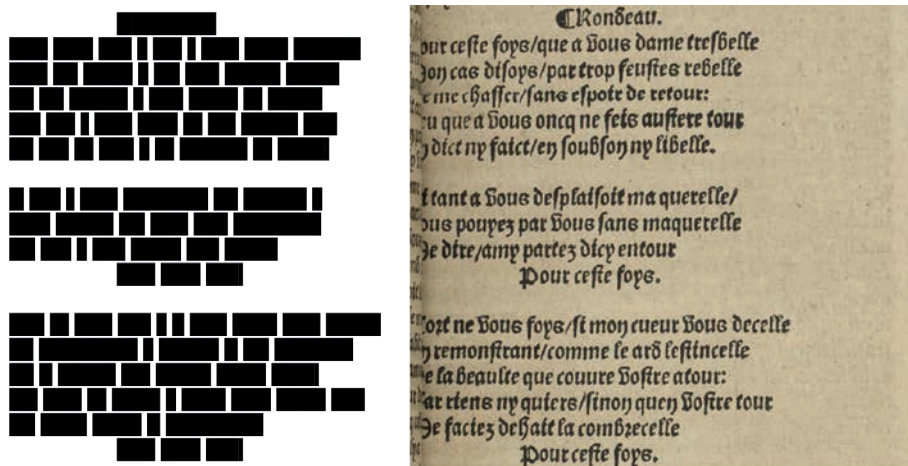 ¶Rondeau.
Pour ceſte foys/que a vous dame treſbelle
Mon cas diſoys/par trop feuſtes rebelle
De me chaſſer/ſans eſpoir de retour:
Veu que a vous oncq ne feis auſtere tour
En dict ny faict/en ſoubſon ny libelle.
Si tant a vous deſplaiſoit ma querelle/
Vous pouyez par vous ſans maquerelle
Me dire/amy partez dicy entour
Pour ceſte foys.
ne vous foys/ſi mon cueur vous decelle
En remonſtrant/comme le ard leſtincelle
De la beaulte que couure voſtre atour:
Car riens ny quiers/ſinon quen voſtre tour
Me faciez dehait la combrecelle
Pour ceſte foys.